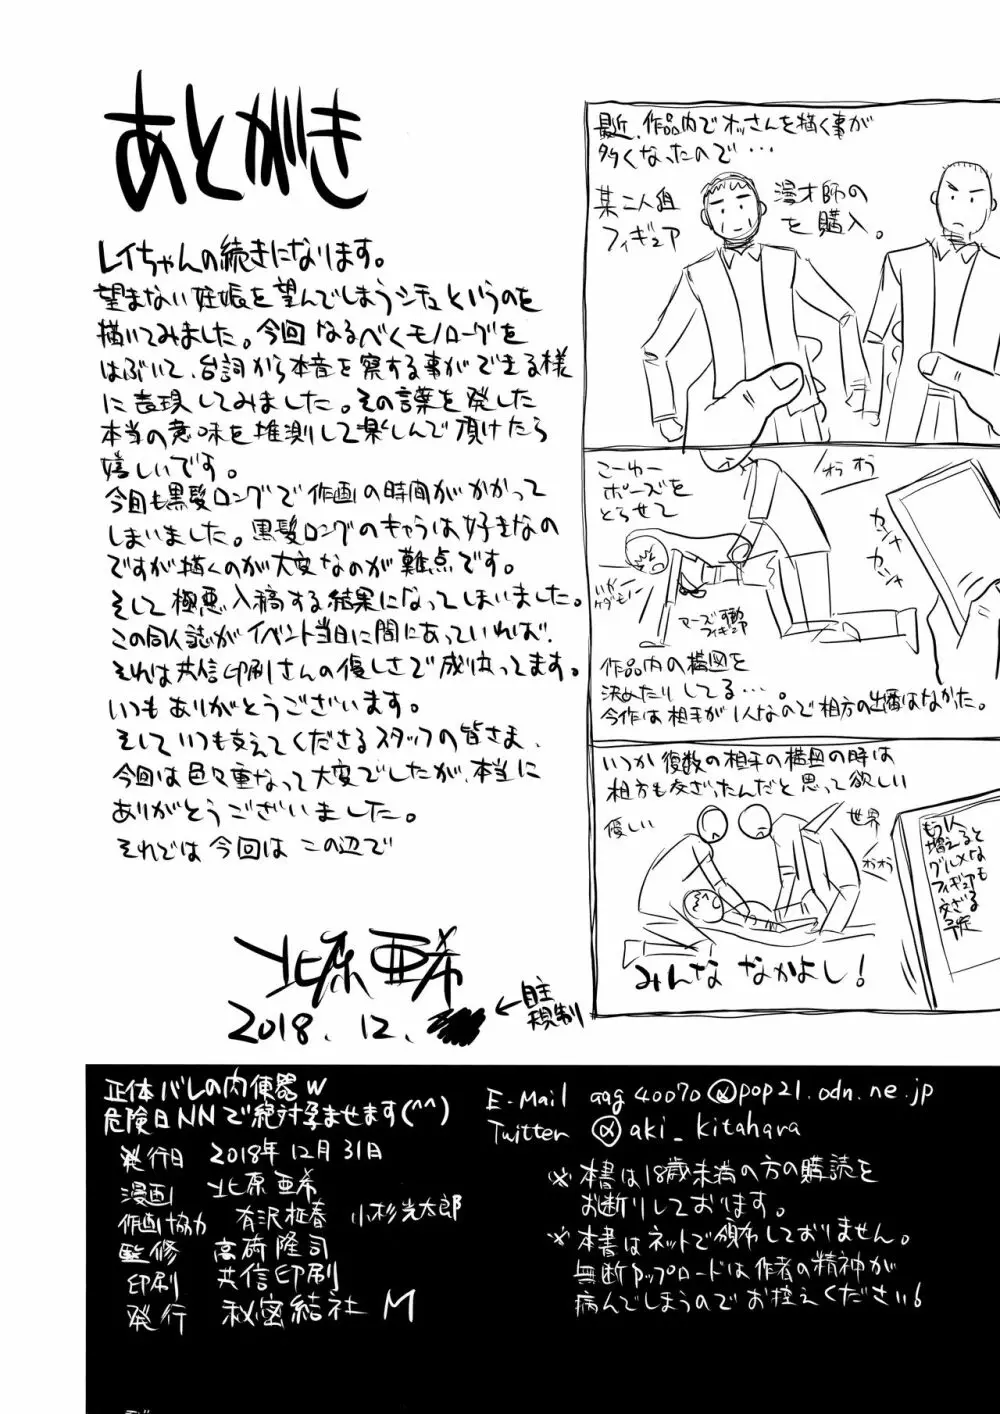 あとがき
レイちゃんの続きになります。
望まない妊娠を望んでしまうシチュというのを
描いてみました。今回なるべくモノローグを
はぶいて、台詞から本音を察する事ができる様
に表現してみました。その言葉を発した
本当の意味を推測して楽しんで頂けたら
嬉しいです。
今回も黒髪ロングで作画の時間がかかって
しまいました。黒髪ロングのキャラは好きなの
ですが描くのが大変なのが難点です。
そして極悪入稿する結果になってしまいました。
この同人誌がイベント当日に間にあっていれば、
それは共信印刷さんの優しさで成り立ってます。
いつもありがとうございます。
そしていつも支えてくださるスタッフの皆さま、
今回は色々重なって大変でしたが、本当に
ありがとうございました。
それでは今回はこの辺で
北原亜希
2018.12.
←自主
規制
最近、作品内でオッさんを描く事が
多くなったので・・・
某二人組
漫才師の
フィギュア
を購入。
こーゆー
ポーズを
とらせて
オラオラ
カシャ
カシャ
いやー
ケダモノー
可動
フィギュア
作品内の構図を
決めたりしてる・・・。
今作は相手が1人なので相方の出番はなかった。
いつか複数の相手の構図の時は
相方も交ざったんだと思って欲しい
優しい
世界
オラオラ
もう1人
増えると
グルメな
フィギュアも
交ざる
予定
みんななかよし!
正体バレの肉便器w
危険日NNで絶対孕ませます(^^)
発行日 2018年12月31日
漫画 北原亜希
作画協力 有沢柾春 小杉光太郎
監修 高荷隆司
印刷 共信印刷
発行 秘密結社M
E-Mail aqg40070@pop21.odn.ne.jp
Twitter @aki_kitahara
※本書は18歳未満の方の購読を
お断りしております。
※本書はネットで頒布しておりません。
無断アップロードは作者の精神が
病んでしまうのでお控えください!